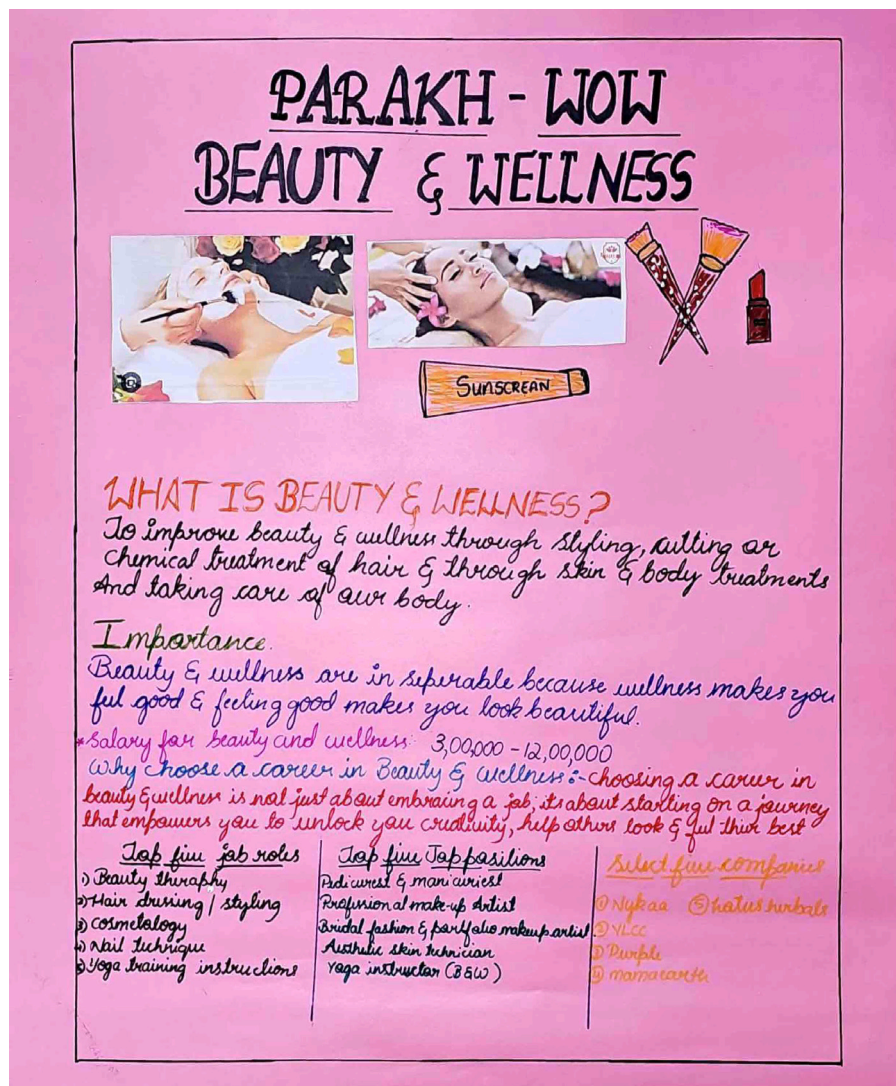 PARAKH - WOW
BEAUTY & WELLNESS
SUNSCREAN
WHAT IS BEAUTY & WELLNESS?
To improve beauty & wellness through styling, cutting or
chemical treatment of hair & through skin & body treatments
And taking care of our body.
Importance.
Beauty & wellness are in seperable because wellness makes you
feel good & feeling good makes you look beautiful.
*Salary for beauty and wellness: 3,00,000 - 12,00,000
Why choose a career in Beauty & wellness:- choosing a career in
beauty & wellness is not just about embracing a job, its about starting on a journey
that empowers you to unlock you creativity, help others look & feel thier best
Top five job roles
1) Beauty theraphy
2) Hair dressing / styling
3) Cosmetology
4) Nail technique
5) Yoga training instructions
Top five Jop positions
Pedicurest & manicuriest
Professional make-up Artist
Bridal fashion & portfolio makeup artist
Aesthetic skin technician
Yoga instructor (B&W)
Select five companies
① Nykaa ⑤ hotus herbals
② VLCC
③ Purple
④ mamaearth